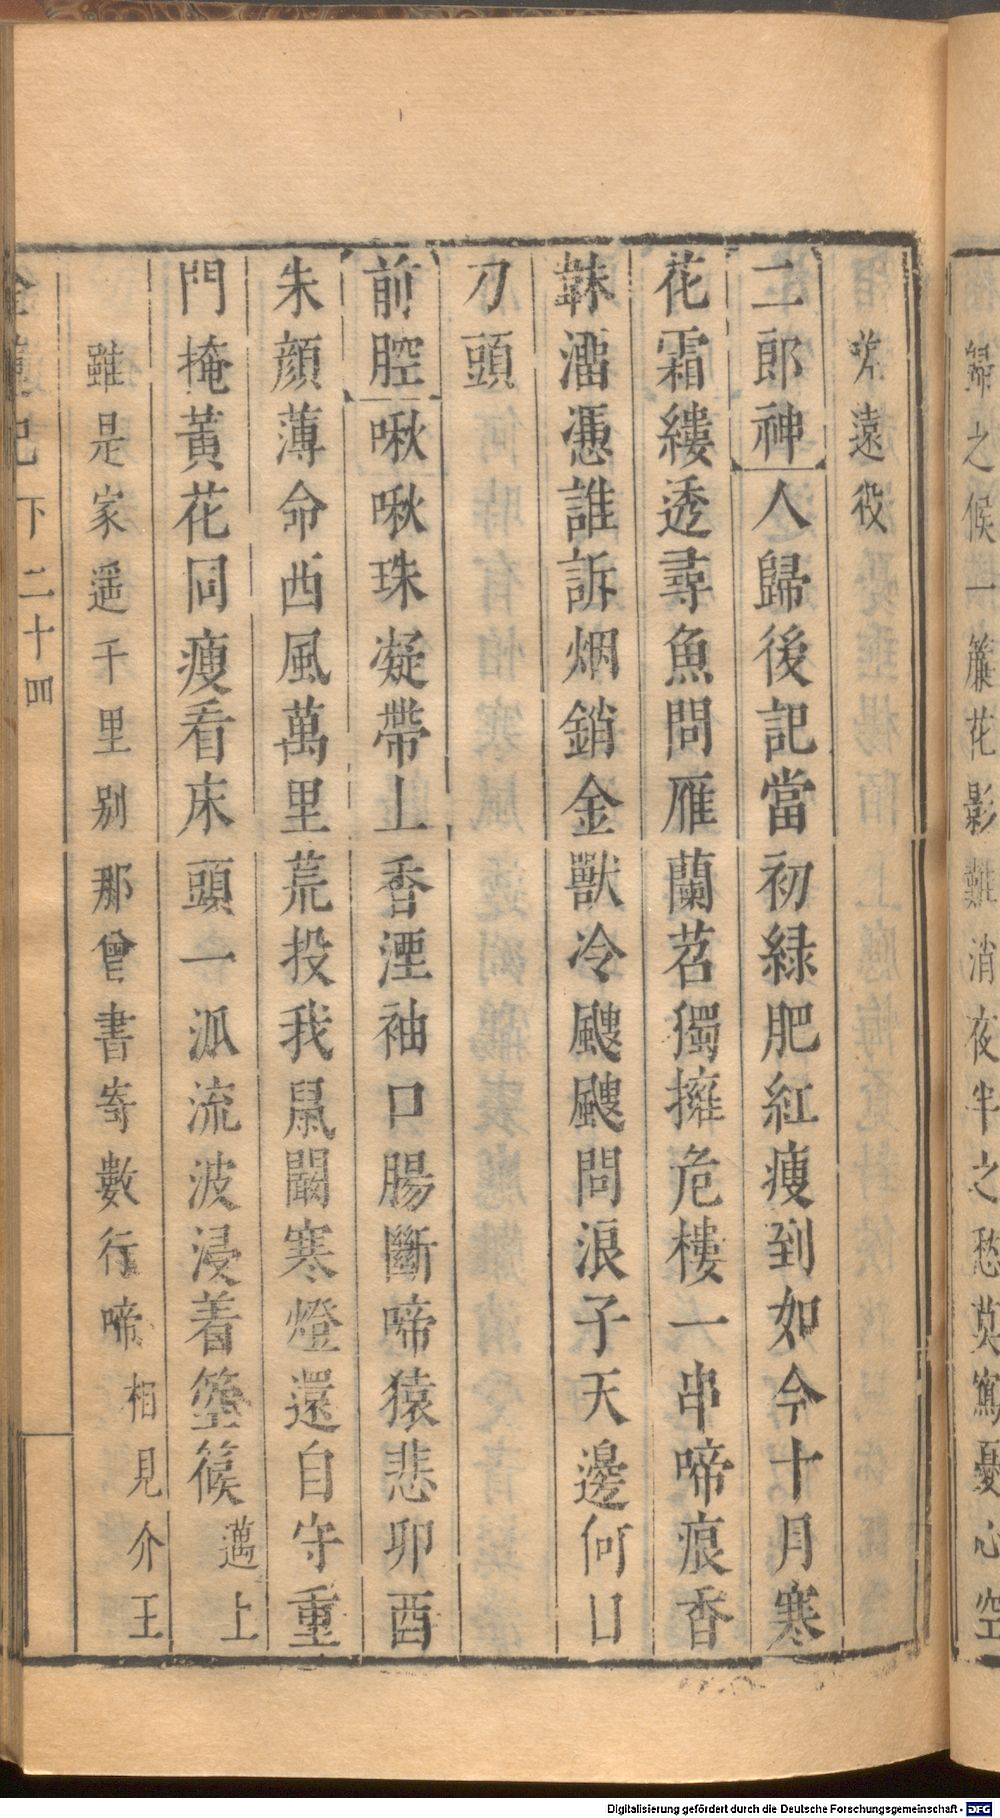 歸之候一簾花影難消夜半之愁莫寫憂心空
嗟遠役
二郎神人歸後記當初綠肥紅瘦到如今十月寒
花霜縷透尋魚問雁蘭苕獨擁危樓一串啼痕香
靺澑憑誰訴烟銷金獸冷颼颼問浪子天邊何日
刀頭
前腔啾啾珠凝帶上香湮袖口腸斷啼猿悲卯酉
朱顔薄命西風萬里荒投我鼠鬭寒燈還自守重
門掩黃花同瘦看床頭一泒流波浸着箜篌 邁上
雖是家遥千里别那曾書寄數行啼 相見介王
下 二十四
Digitalisierung gefördert durch die Deutsche Forschungsgemeinschaft - DFG